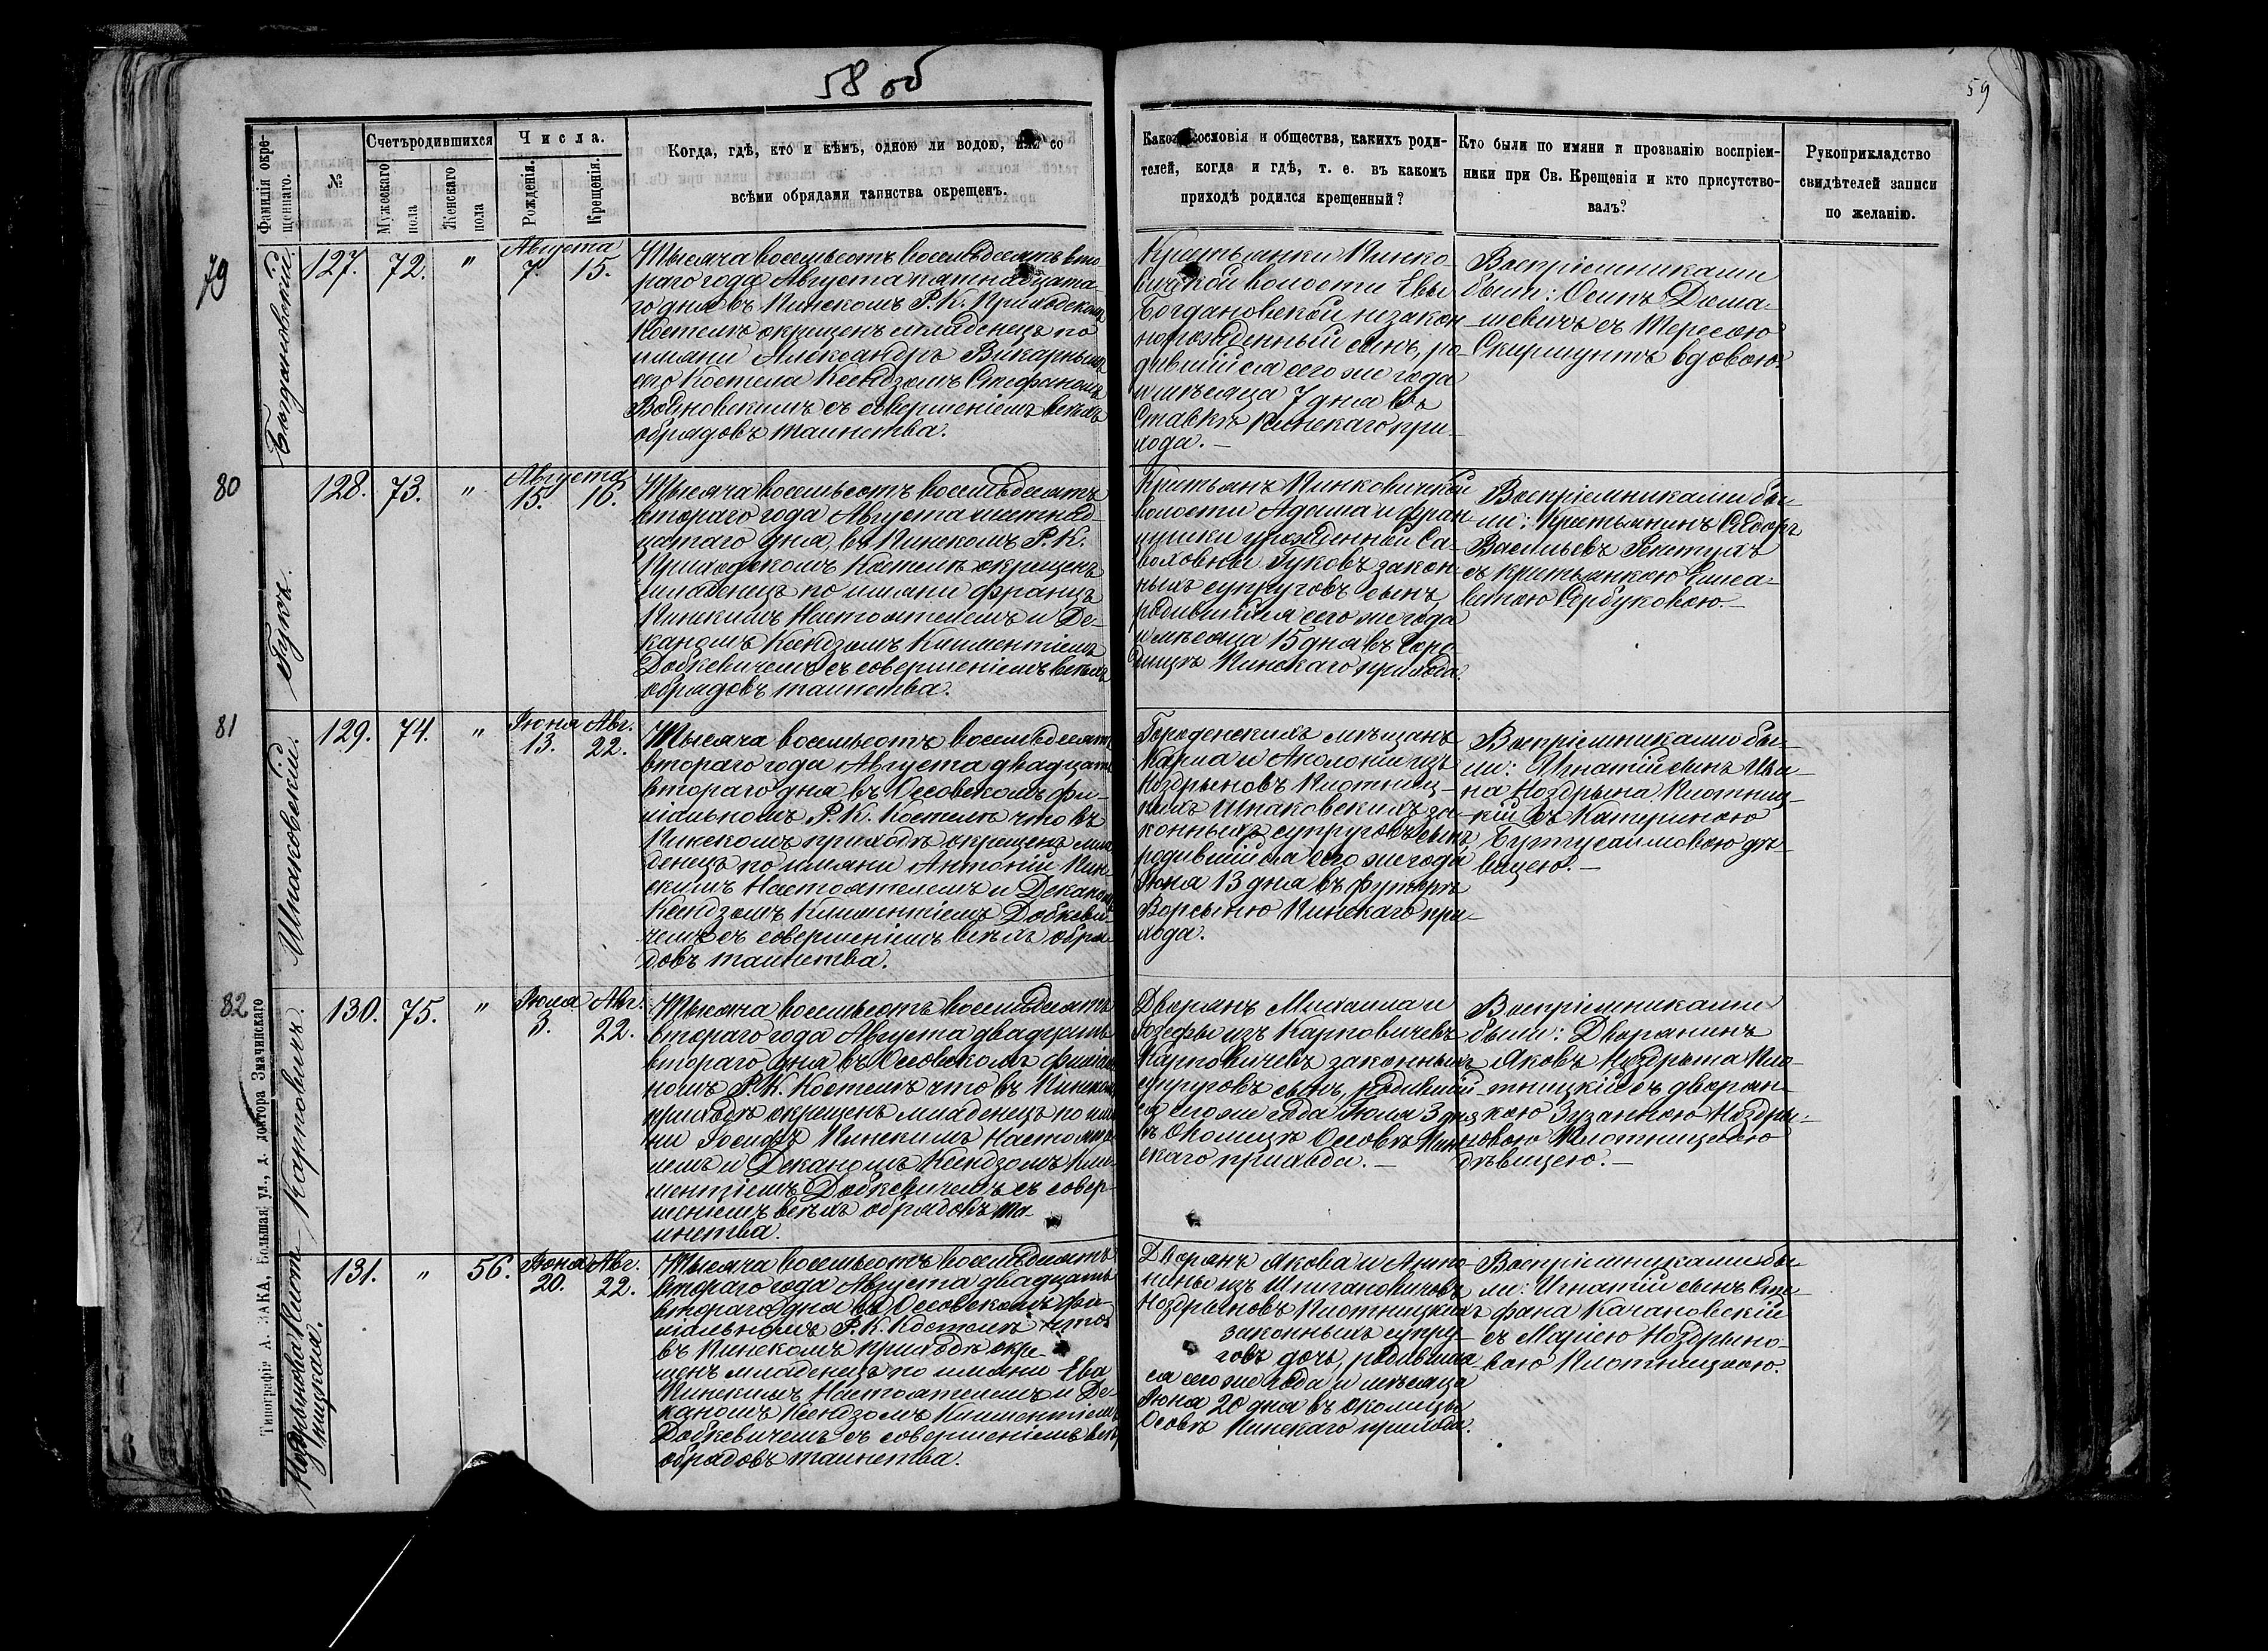 58 об
59
Фамилія окрещеннаго.
№
Счетъ родившихся
Мужескаго пола
Женскаго пола
Числа.
Рожденія.
Крещенія.
Когда, гдѣ, кто и кѣмъ, одною ли водою, или со
всѣми обрядами таинства окрещенъ.
Какого сословія и общества, какихъ роди-
телей, когда и гдѣ, т. е. въ какомъ
приходѣ родился крещенный?
Кто были по имяни и прозванію воспріем-
ники при Св. Крещеніи и кто присутство-
валъ?
Рукоприкладство
свидѣтелей записи
по желанію.
79
Богдановскій.
127. 72. " Августа 7. 15.
Тысяча восемьсотъ восемьдесятъ вто-
раго года Августа пятнадцата-
го дня въ Пинскомъ Р. К. Приходскомъ
Костелѣ окрещенъ младенецъ по
имяни Александръ Викарнымъ
сего Костела Ксендзомъ Стефаномъ
Войновскимъ съ совершеніемъ всѣхъ
обрядовъ таинства.
Крестьянки Пинко-
вичской волости Евы
Богдановской незакон-
норожденный сынъ, ро-
дившійся сего же года
и мѣсяца 7 дня въ
Ставкѣ Пинскаго при-
хода.—
Воспріемниками
были: Осипъ Дома-
шевичъ съ Тересою
Скирмунтъ вдовою.
80
Гукъ.
128. 73. " Августа 15. 16.
Тысяча восемьсотъ восемьдесятъ
втораго года Августа шестнад-
цатаго дня, въ Пинскомъ Р. К.
Приходскомъ Костелѣ окрещенъ
младенецъ по имяни Францъ
Пинскимъ Настоятелемъ и Де-
каномъ Ксендзомъ Климентіемъ
Добкевичемъ съ совершеніемъ всѣхъ
обрядовъ таинства.
Крестьянъ Пинковичской
волости Адама и Фран-
цишки урожденной Са-
Гуковъ закон-
ныхъ супруговъ сынъ,
родившійся сего же года
и мѣсяца 15 дня въ Горо-
дищѣ Пинскаго прихода.
Воспріемниками бы-
ли: Крестьянинъ Ѳедоръ
Васильевъ
съ крестьянкою Елиса-
ветою
81
Шпаковскій.
129. 74. " Іюня 13. Авг. 22.
Тысяча восемьсотъ восемьдесятъ
втораго года Августа двадцать
втораго дня въ Оссовскомъ фи-
ліальномъ Р. К. Костелѣ что въ
Пинскомъ приходѣ окрещенъ мла-
денецъ по имяни Антоній Пин-
скимъ Настоятелемъ и Деканомъ
Ксендзомъ Климентіемъ Добкеви-
чемъ съ совершеніемъ всѣхъ обря-
довъ таинства.
Городенскихъ мѣщанъ
Карла и Аполоніи изъ
Ноздрыновъ Плотниц-
кихъ Шпаковскихъ за-
конныхъ супруговъ сынъ,
родившійся сего же года
Іюня 13 дня въ футорѣ
Ворсыню Пинскаго при-
хода.
Воспріемниками бы-
ли: Игнатій сынъ Ива-
на Ноздрына Плотниц-
кій съ Катериною
дѣ-
вицею.—
82
Карповичъ.
130. 75. " Іюля 3. Авг. 22.
Тысяча восемьсотъ восемьдесятъ
втораго года Августа двадцать
втораго дня въ Оссовскомъ филіаль-
номъ Р. К. Костелѣ что въ Пинскомъ
приходѣ окрещенъ младенецъ по имя-
ни Іосифъ Пинскимъ Настояте-
лемъ и Деканомъ Ксендзомъ Кли-
ментіемъ Добкевичемъ съ совер-
шеніемъ всѣхъ обрядовъ та-
инства.
Дворянъ Михаила и
Іозефы изъ Карповичевъ
Карповичевъ законныхъ
супруговъ сынъ, родившій-
ся сего же года Іюля 3 дня
въ Околицѣ Оссовѣ Пин-
скаго прихода.—
Воспріемниками
были: Дворянинъ
Яковъ Ноздрына Пло-
тницкій съ дворян-
кою Зузанною Ноздры-
новою Плотницкою
дѣвицею.—
Типографія А. ЗАКА, Большая ул., д. доктора Змачинскаго
Ноздрынова Плот-
ницкая.
131. " 56. Іюня 20. Авг. 22.
Тысяча восемьсотъ восемьдесятъ
втораго года Августа двадцать
втораго дня въ Оссовскомъ фи-
ліальномъ Р. К. Костелѣ что
въ Пинскомъ приходѣ окре-
щенъ младенецъ по имяни Ева
Пинскимъ Настоятелемъ и Де-
каномъ Ксендзомъ Климентіемъ
Добкевичемъ съ совершеніемъ всѣхъ
обрядовъ таинства.
Дворянъ Якова и Анто-
нины изъ Шпигановичовъ
Ноздрыновъ Плотницкихъ
законныхъ супру-
говъ дочь, родившая-
ся сего же года и мѣсяца
Іюня 20 дня въ околицы
Осовѣ Пинскаго прихода.
Воспріемниками бы-
ли: Игнатій сынъ Сте-
фана Качановскій
съ Маріею Ноздрыно-
вою Плотницкою.